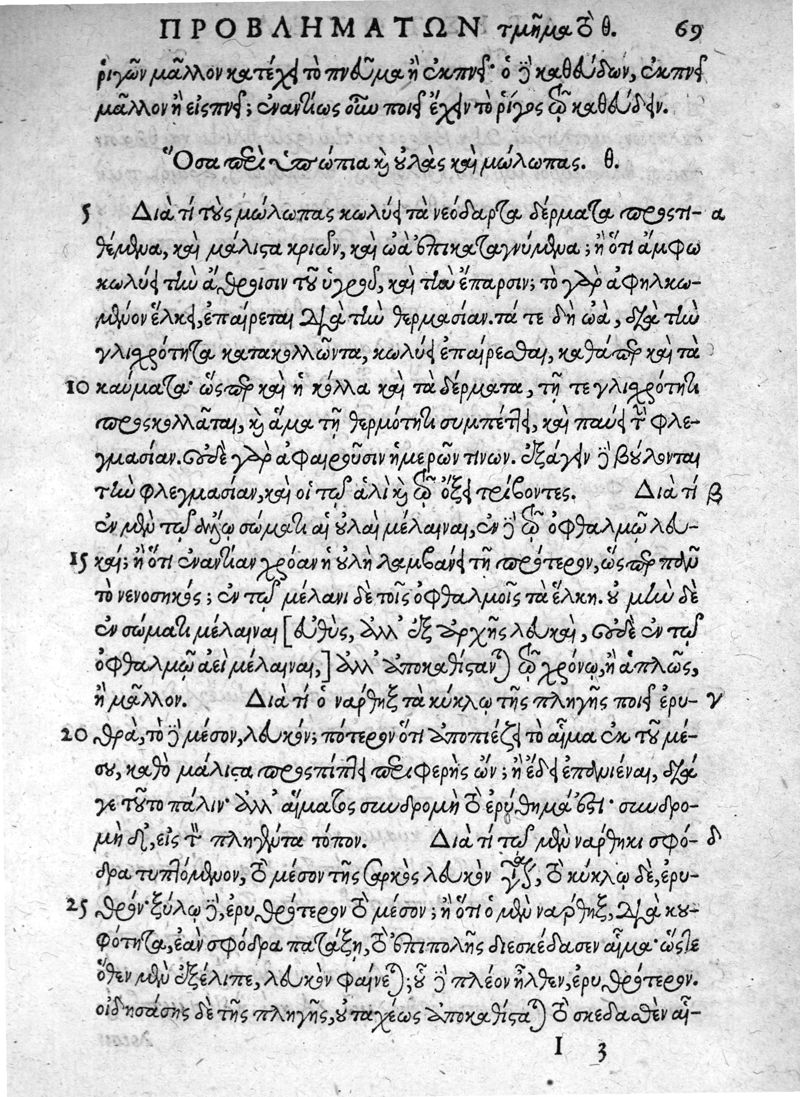 ΠΡΟΒΛΗΜΑΤΩΝ τμῆμα τὸ θ. 69
ῥιγῶν μᾶλλον κατέχει τὸ πνεῦμα ἢ ἐκπνεῖ· ὁ δὲ καθεύδων, ἐκπνεῖ
μᾶλλον ἢ εἰσπνεῖ; ἐναντίως οὖν ποιεῖ ἔχειν τὸ ῥῖγος τῷ καθεύδειν.
Ὅσα περὶ ὑπώπια καὶ οὐλὰς καὶ μώλωπας. θ.
5 Διὰ τί τοὺς μώλωπας κωλύει τὰ νεόδαρτα δέρματα προστι- α
θέμενα, καὶ μάλιστα κριῶν, καὶ ὠὰ ἐπικαταγνύμενα; ἢ ὅτι ἄμφω
κωλύει τὴν ἄθροισιν τοῦ ὑγροῦ, καὶ τὴν ἔπαρσιν; τὸ γὰρ ἀφηλκω-
μένον ἕλκει, ἐπαίρεται διὰ τὴν θερμασίαν. τά τε δὴ ὠὰ, διὰ τὴν
γλισχρότητα κατακολλῶντα, κωλύει ἐπαίρεσθαι, καθάπερ καὶ τὰ
10 καύματα· ὥσπερ καὶ ἡ κόλλα καὶ τὰ δέρματα, τῇ τε γλισχρότητι
προσκολλᾶται, καὶ ἅμα τῇ θερμότητι συμπέττει, καὶ παύει τὴν φλε-
γμασίαν. οὐδὲ γὰρ ἀφαιροῦσιν ἡμερῶν τινων. ἐξάγειν δὲ βούλονται
τὴν φλεγμασίαν, καὶ οἱ τῷ ἁλὶ καὶ τῷ ὄξει τρίβοντες. Διὰ τί β
ἐν μὲν τῷ ἄλλῳ σώματι αἱ οὐλαὶ μέλαιναι, ἐν δὲ τῷ ὀφθαλμῷ λευ-
15 καί; ἢ ὅτι ἐναντίαν χρόαν ἡ οὐλὴ λαμβάνει τῇ πρότερον, ὥσπερ πᾶν
τὸ νενοσηκός; ἐν τῷ μέλανι δὲ τοῖς ὀφθαλμοῖς τὰ ἕλκη. οὐ μὴν δὲ
ἐν σώματι μέλαιναι [εὐθὺς, ἀλλ' ἐξ ἀρχῆς λευκαὶ, οὐδὲ ἐν τῷ
ὀφθαλμῷ ἀεὶ μέλαιναι,] ἀλλ' ἀποκαθίστανται τῷ χρόνῳ, ἢ ἁπλῶς,
ἢ μᾶλλον. Διὰ τί ὁ νάρθηξ τὰ κύκλῳ τῆς πληγῆς ποιεῖ ἐρυ- γ
20 θρὰ, τὸ δὲ μέσον, λευκόν; πότερον ὅτι ἀποπιέζει τὸ αἷμα ἐκ τοῦ μέ-
σου, καθὸ μάλιστα προσπίπτει περιφερὴς ὤν; ἢ ἔδει ἐπανιέναι, διά
γε τοῦτο πάλιν· ἀλλ' αἵματος συνδρομὴ τὸ ἐρύθημά ἐστι· συνδρο-
μὴ δὲ, εἰς τὸν πληγέντα τόπον. Διὰ τί τῷ μὲν νάρθηκι σφό- δ
δρα τυπτόμενον, τὸ μέσον τῆς σαρκὸς λευκὸν γίνεται, τὸ κύκλῳ δὲ, ἐρυ-
25 θρόν· ξύλῳ δὲ, ἐρυθρότερον τὸ μέσον; ἢ ὅτι ὁ μὲν νάρθηξ, διὰ κου-
φότητα, ἐὰν σφόδρα πατάξῃ, τὸ ἐπιπολῆς διεσκέδασεν αἷμα· ὥστε
ὅθεν μὲν ἐξέλιπε, λευκὸν φαίνεται; οὗ δὲ πλέον ἦλθεν, ἐρυθρότερον.
οἰδησάσης δὲ τῆς πληγῆς, οὐ ταχέως ἀποκαθίσταται τὸ σκεδασθὲν αἷ-
I 3